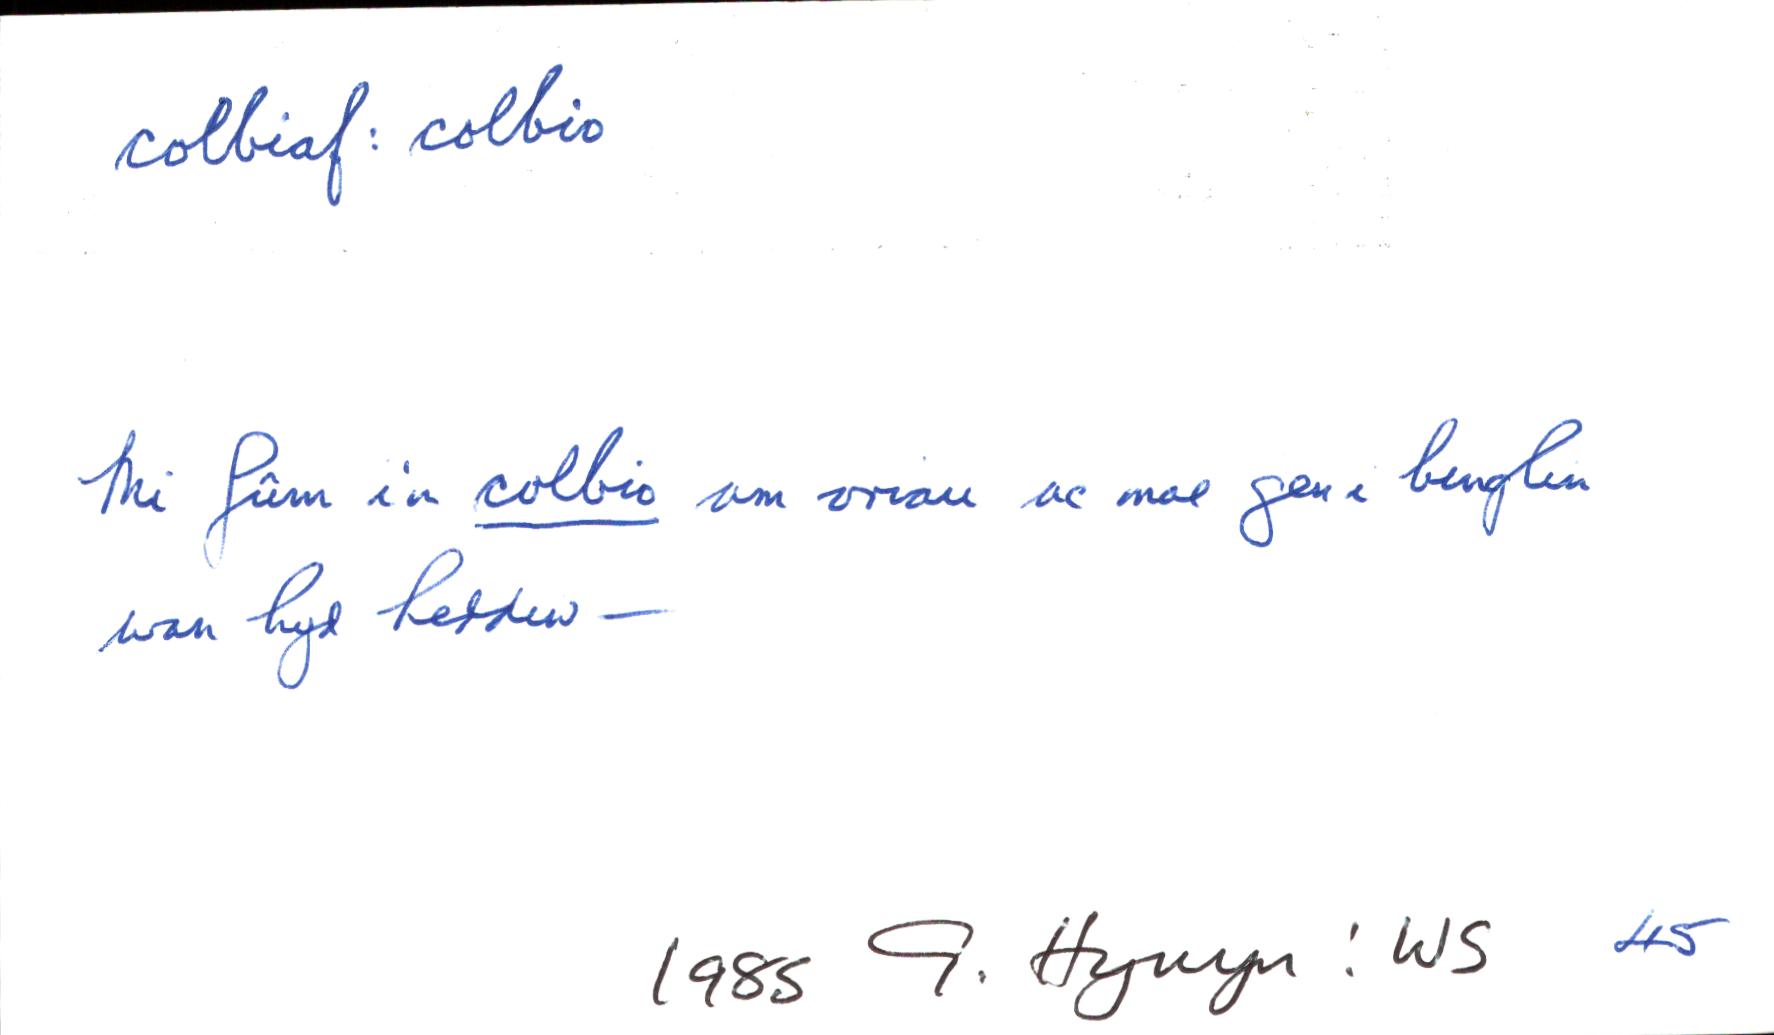 colbiaf: colbio
Mi fûm i'n colbio am oriau ac mae gen i benglin
wan hyd heddiw —
1985 G. Hywyn: WS 45